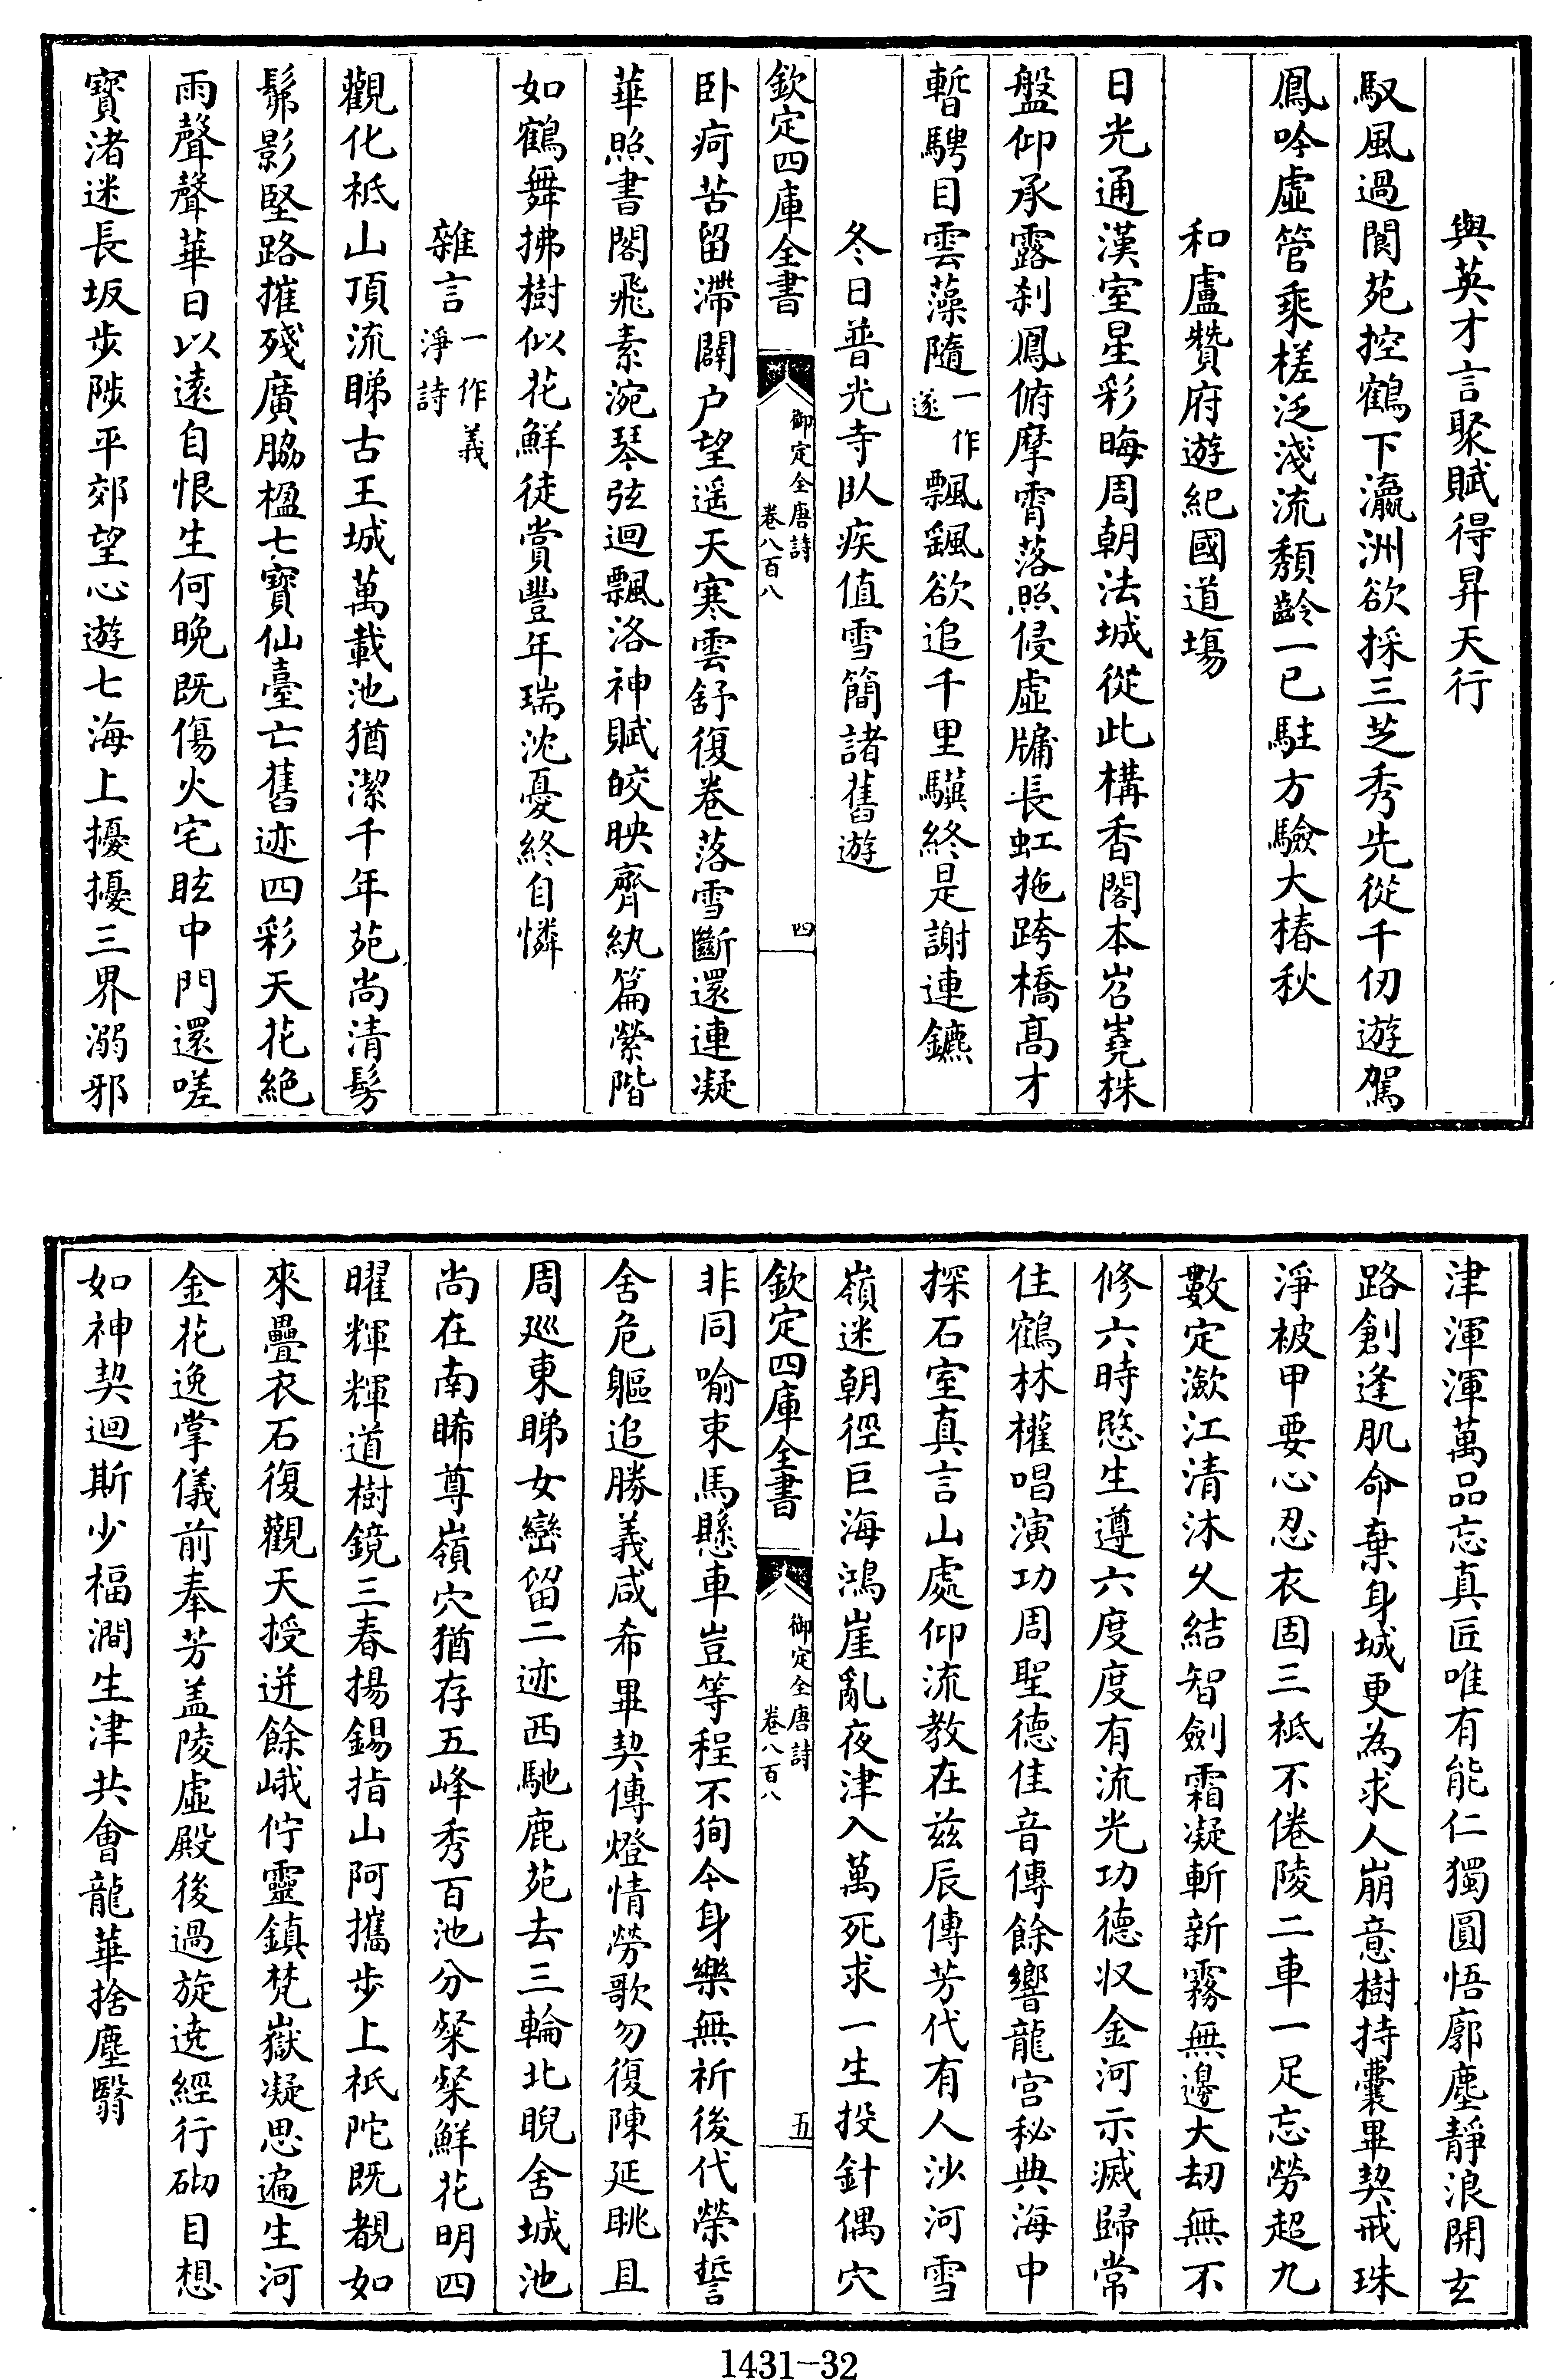 與英才言聚賦得昇天行
馭風過閬苑控鶴下瀛洲欲採三芝秀先從千仞遊駕
鳳吟虛管乘槎泛淺流頽齡一已駐方驗大椿秋
和盧贊府遊紀國道塲
日光通漢室星彩晦周朝法城從此構香閣本岧嶤株
盤仰承露刹鳳俯摩霄落照侵虛牖長虹拖跨橋髙才
暫騁目雲藻隨一作遂飄颻欲追千里驥終是謝連鑣
冬日普光寺臥疾值雪簡諸舊遊
欽定四庫全書
御定全唐詩
卷八百八
四
卧疴苦留滯闢户望遥天寒雲舒復卷落雪斷還連凝
華照書閣飛素涴琴弦迴飄洛神賦皎映齊紈篇縈階
如鶴舞拂樹似花鮮徒賞豐年瑞沈憂終自憐
雜言一作義淨詩
觀化祗山頂流睇古王城萬載池猶潔千年苑尚清髣
髴影堅路摧殘廣脇楹七寶仙臺亡舊迹四彩天花絶
雨聲聲華日以遠自恨生何晩既傷火宅眩中門還嗟
寳渚迷長坂步陟平郊望心遊七海上擾擾三界溺邪
津渾渾萬品忘真匠唯有能仁獨圓悟廓塵靜浪開玄
路創逢肌命棄身城更為求人崩意樹持囊畢契戒珠
淨被甲要心忍衣固三袛不倦陵二車一足忘勞超九
數定瀲江清沐久結智劍霜凝斬新霧無邊大刼無不
修六時愍生遵六度度有流光功德收金河示滅歸常
住鶴林權唱演功周聖德佳音傳餘響龍宫秘典海中
探石室真言山處仰流教在兹辰傳芳代有人沙河雪
嶺迷朝徑巨海鴻崖亂夜津入萬死求一生投針偶穴
欽定四庫全書
御定全唐詩
卷八百八
五
非同喻束馬懸車豈等程不狥今身樂無祈後代榮誓
舍危軀追勝義咸希畢契傳燈情勞歌勿復陳延眺且
周廵東睇女巒留二迹西馳鹿苑去三輪北睨舍城池
尚在南睎尊嶺穴猶存五峰秀百池分粲粲鮮花明四
曜輝輝道樹鏡三春揚錫指山阿攜步上祇陀既覩如
來疊衣石復觀天授迸餘峨佇靈鎮梵嶽凝思遍生河
金花逸掌儀前奉芳盖陵虛殿後過旋遶經行砌目想
如神契迴斯少福澗生津共會龍華捨塵翳
1431-32